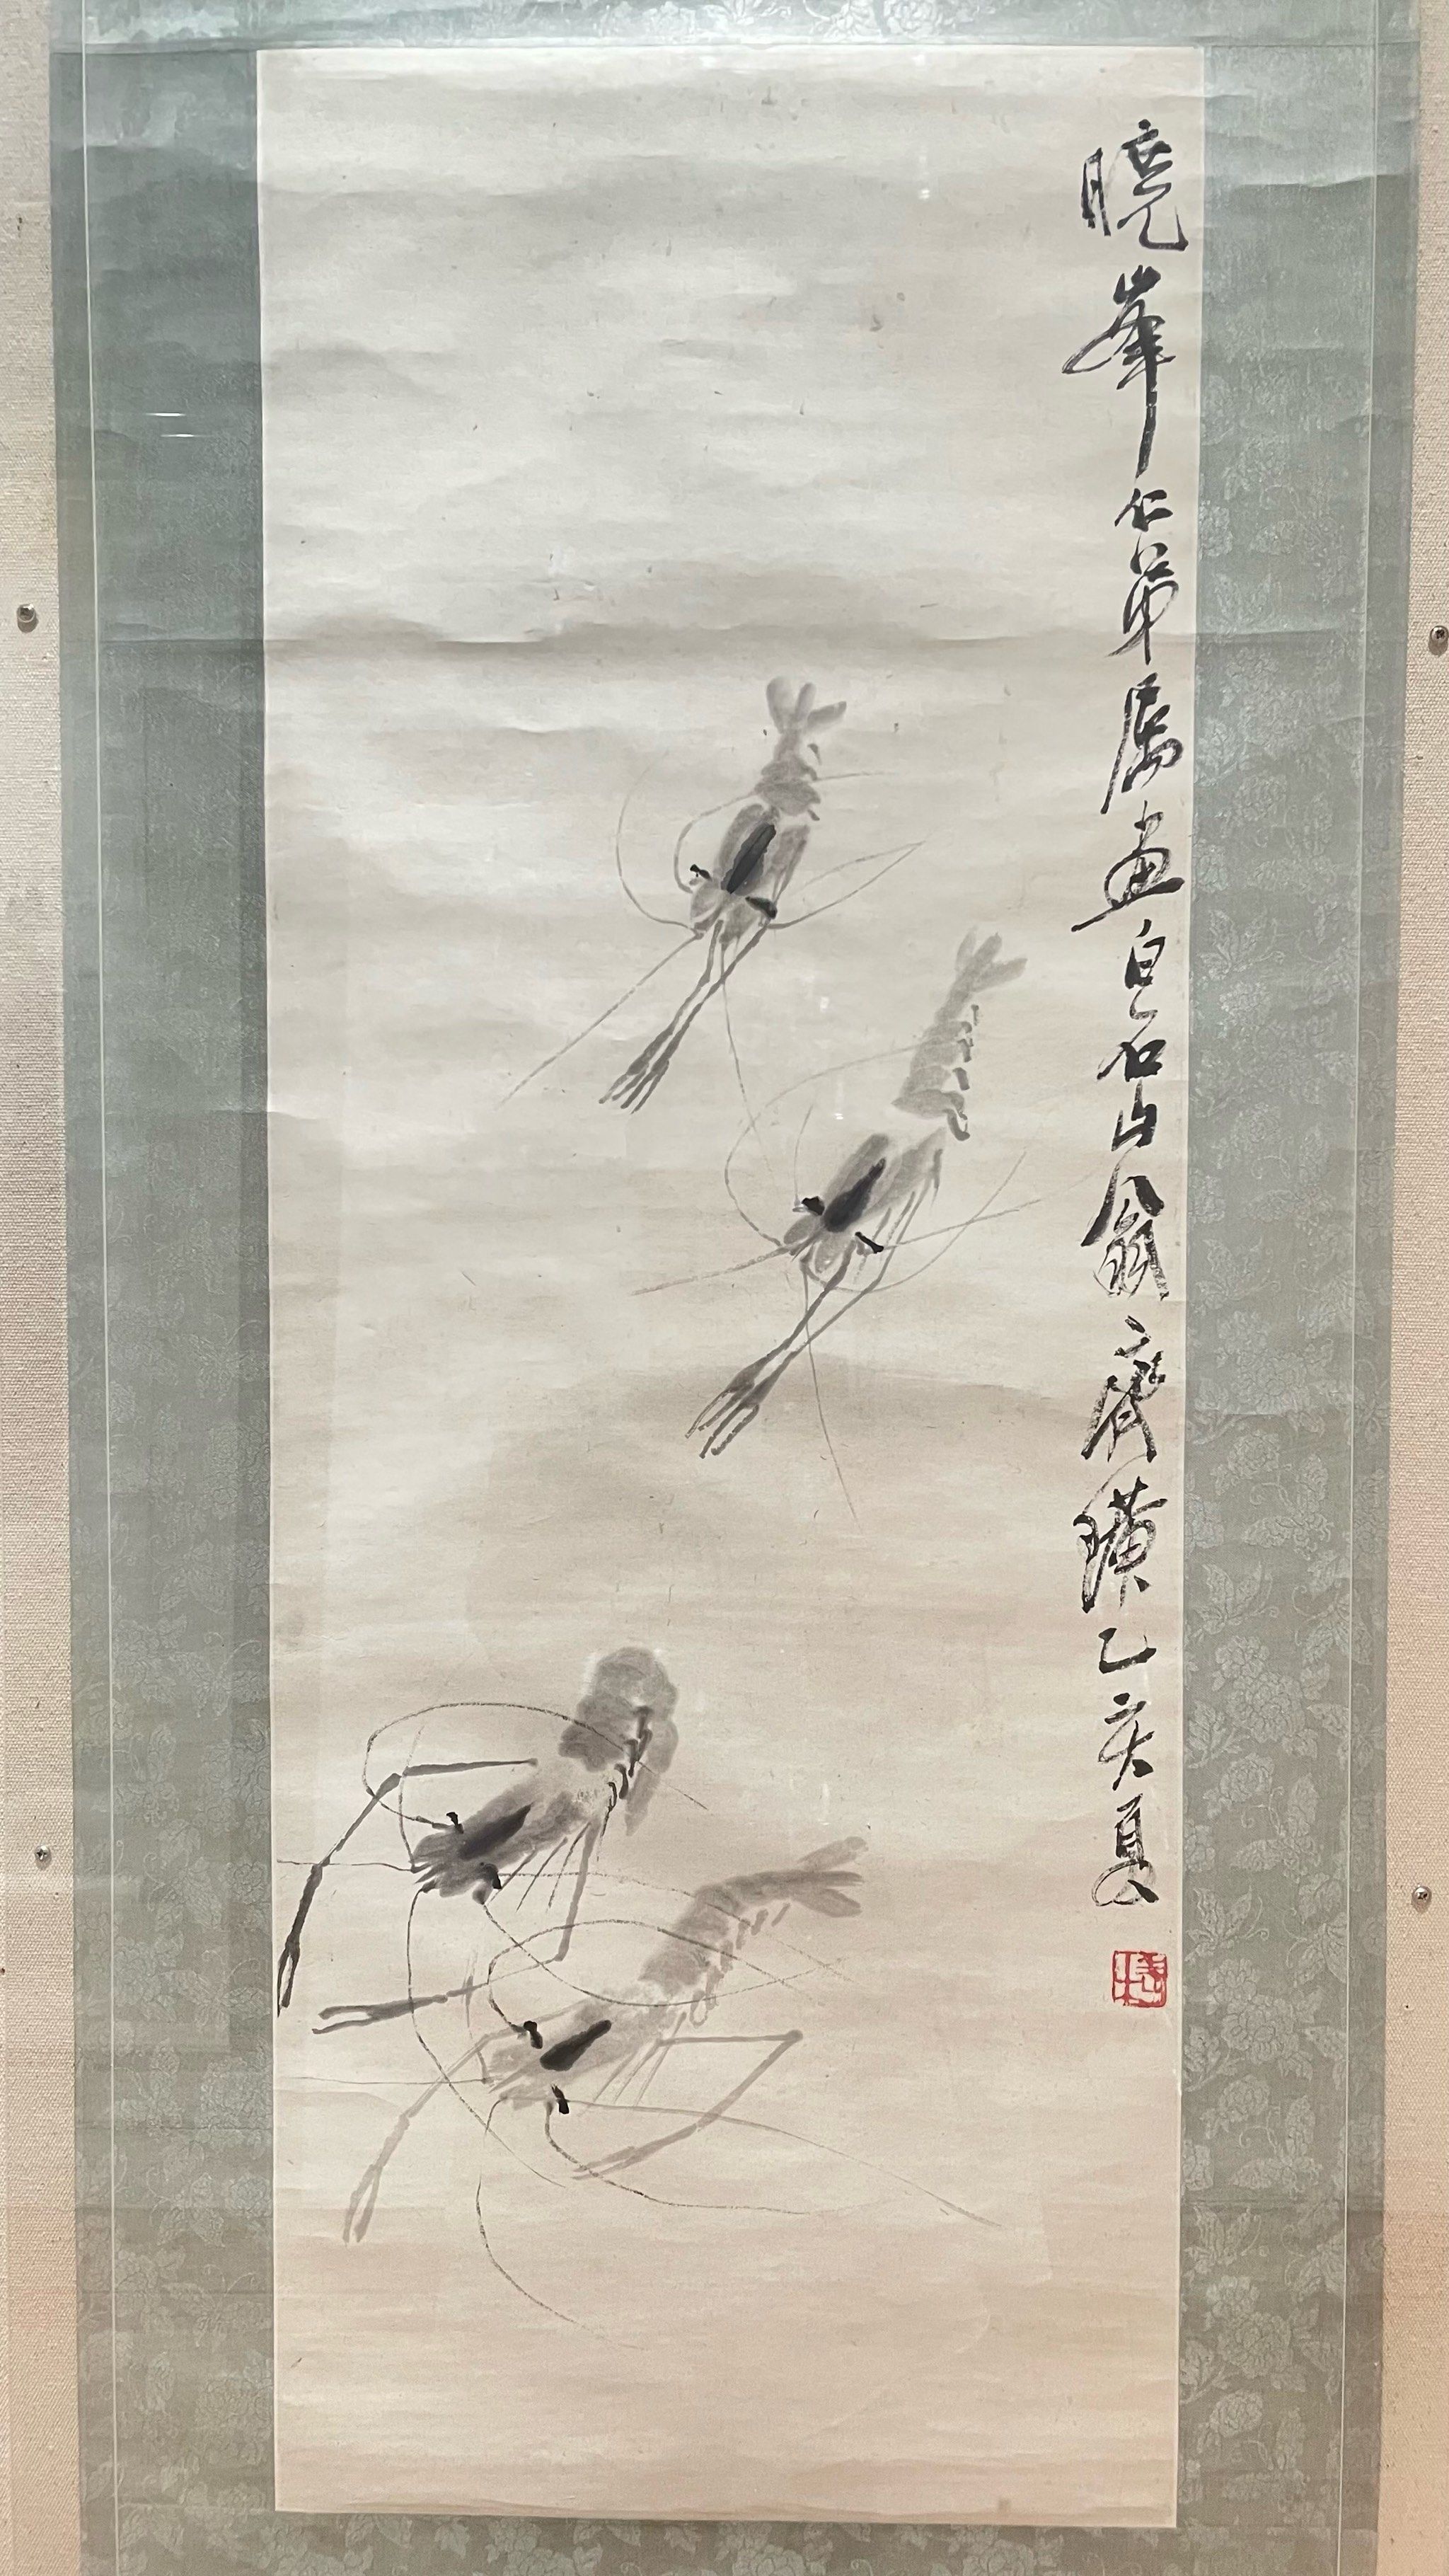 曉峯仁弟屬畫白石山翁齊璜乙亥夏